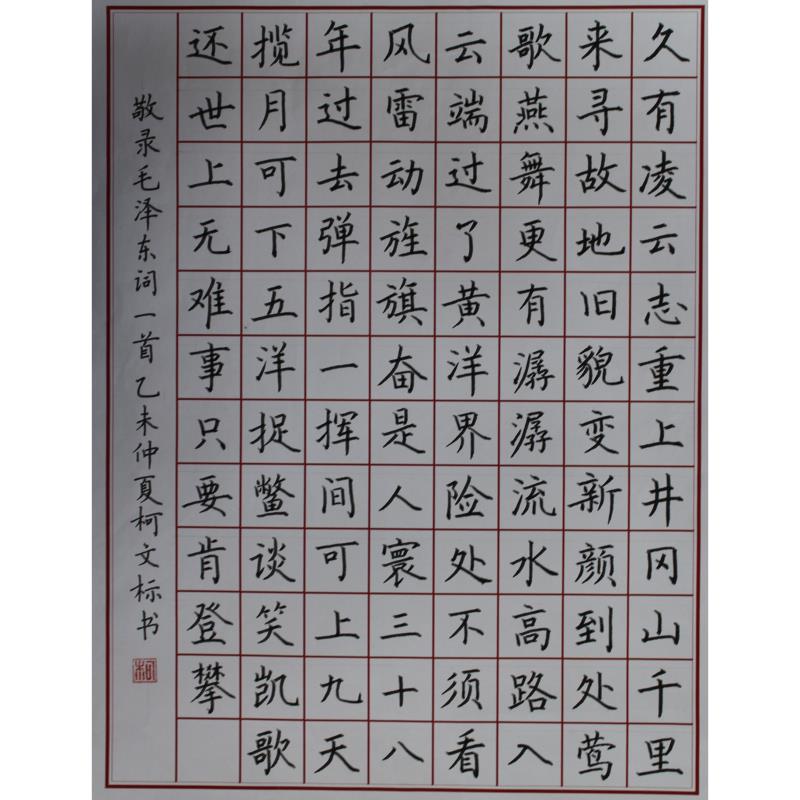 久有凌云志重上井冈山千里
来寻故地旧貌变新颜到处莺
歌燕舞更有潺潺流水高路入
云端过了黄洋界险处不须看
风雷动旌旗奋是人寰三十八
年过去弹指一挥间可上九天
揽月可下五洋捉鳖谈笑凯歌
还世上无难事只要肯登攀
敬录毛泽东词一首乙未仲夏柯文标书